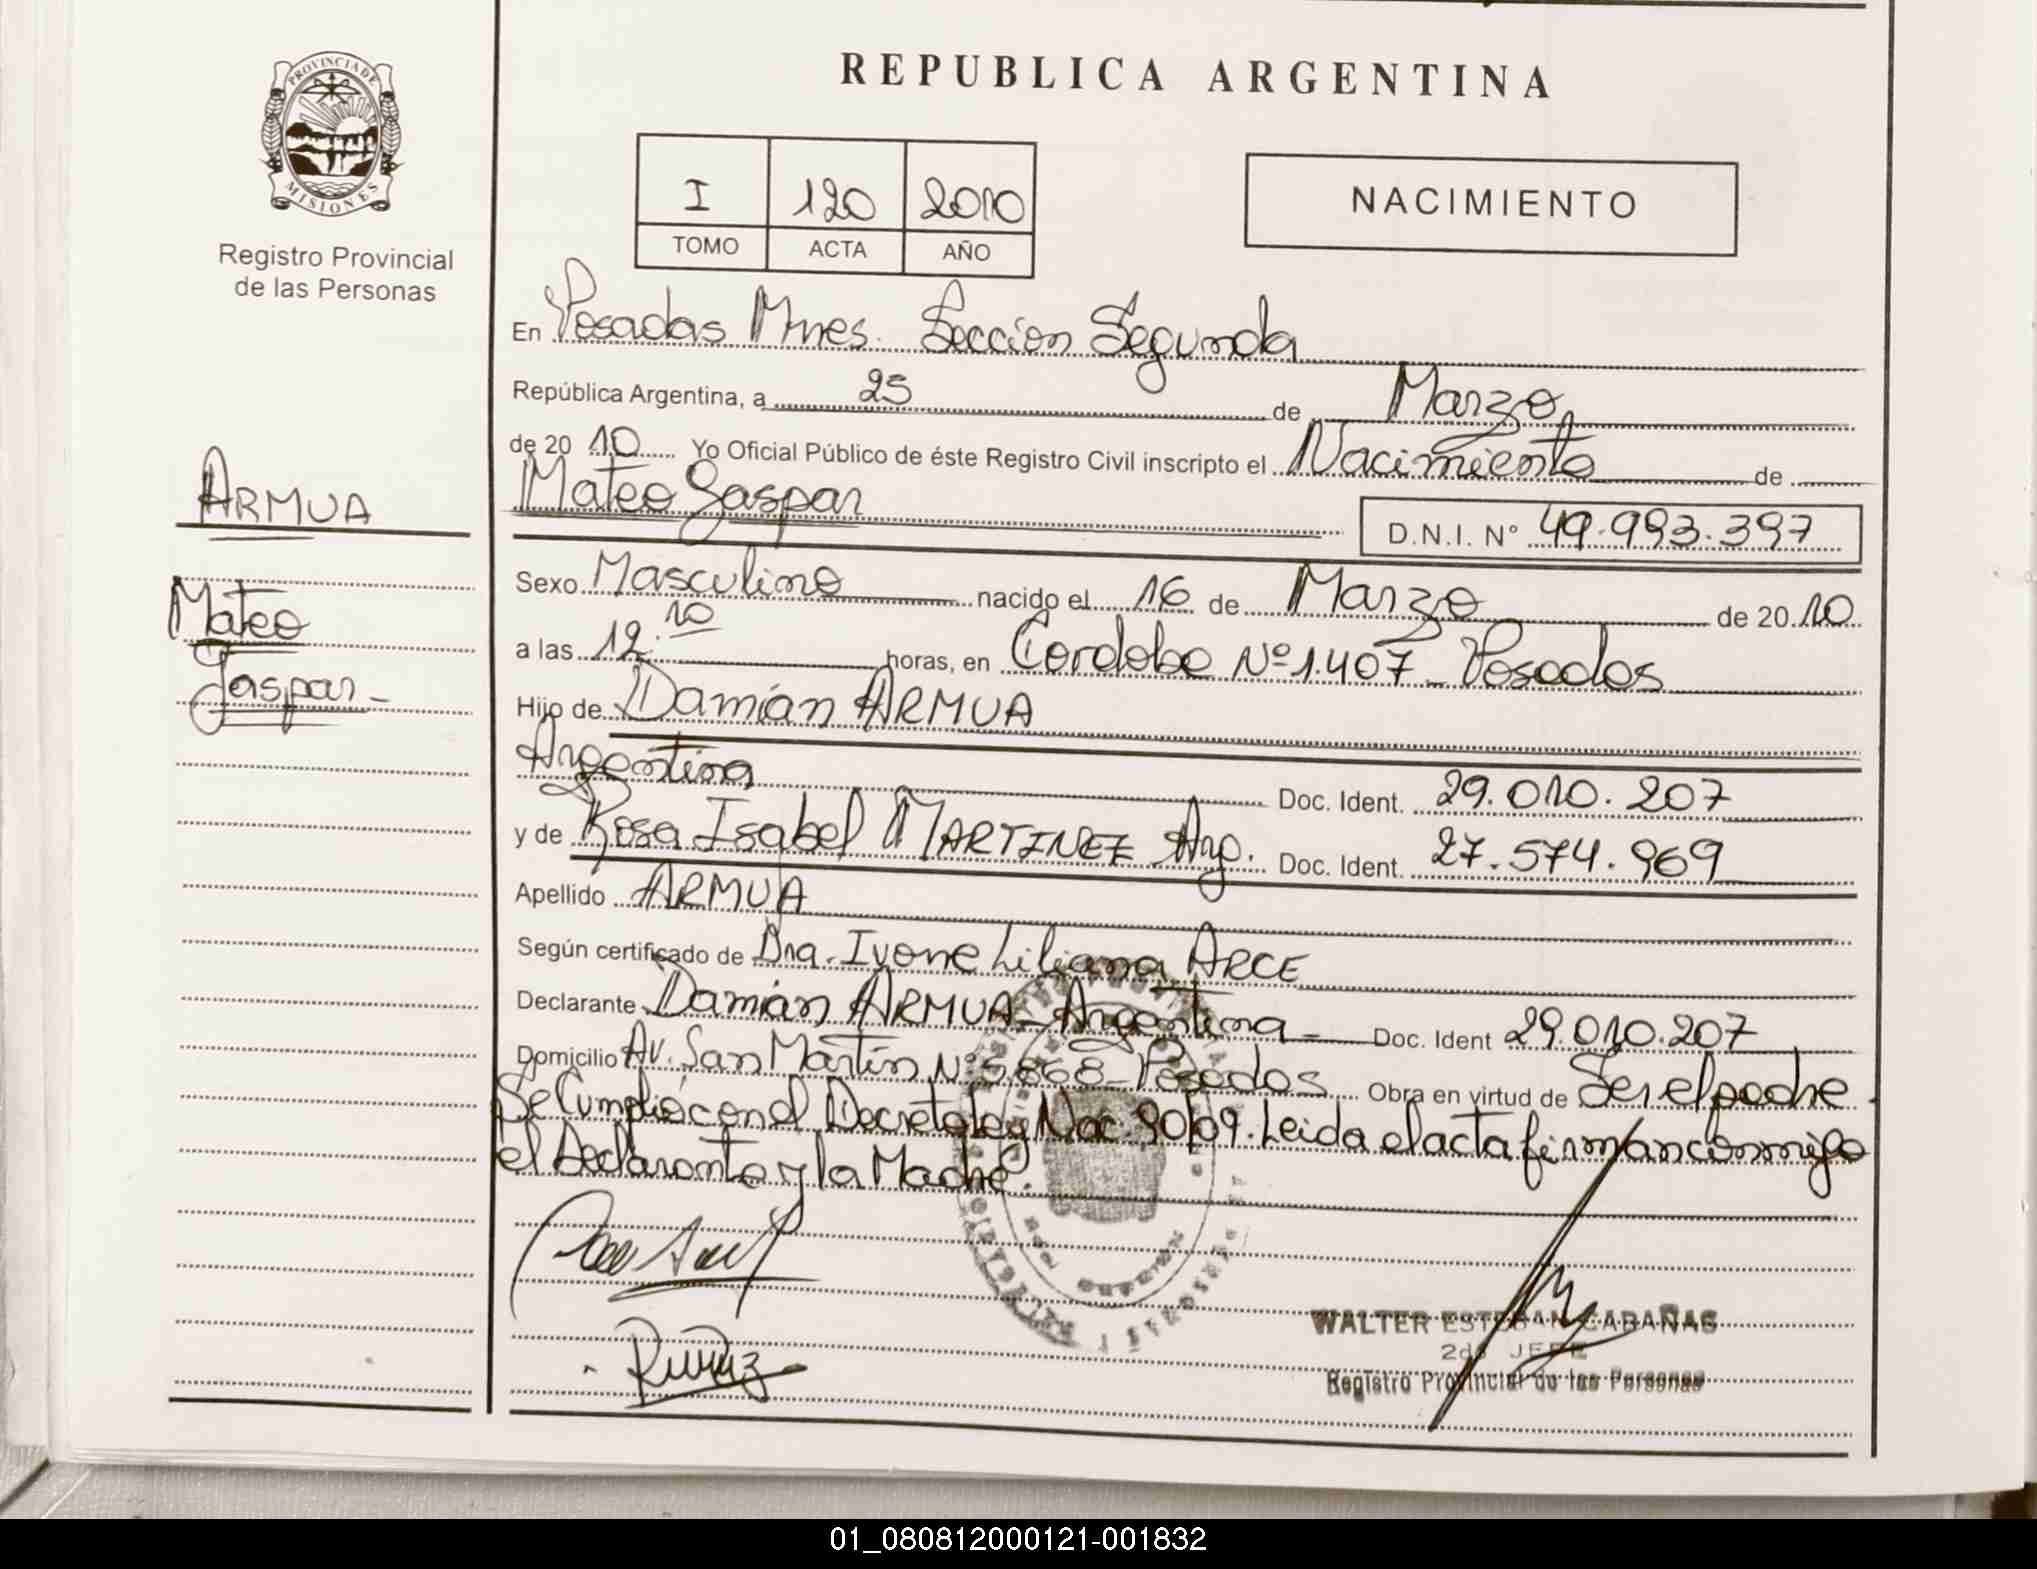 PROVINCIA DE
MISIONES
Registro Provincial
de las Personas
ARMUA
Mateo
Gaspar-
REPUBLICA ARGENTINA
I 120 2010
TOMO ACTA AÑO
NACIMIENTO
En Posadas Mnes. Sección Segunda
República Argentina, a 25 de Marzo
de 20 10 Yo Oficial Público de éste Registro Civil inscripto el Nacimiento de
Mateo Gaspar
D.N.I. N° 49.993.397
Sexo Masculino nacido el 16 de Marzo de 20 10
a las 12.10 horas, en Cordoba Nº 1.407 - Posadas
Hijo de Damián ARMUA
Argentina Doc. Ident. 29.010.207
y de Rosa Isabel MARTINEZ Arg. Doc. Ident. 27.574.969
Apellido ARMUA
Según certificado de Dra. Ivone Liliana ARCE
Declarante Damián ARMUA - Argentina - Doc. Ident 29.010.207
Domicilio Av. San Martín Nº 5.868 - Posadas Obra en virtud de Ser el padre.
Se Cumplió con el Decreto Ley Nac. 90/09. Leida el acta firman conmigo
el Declarante y la Madre.
WALTER ESTEBAN CABAÑAS
2do JEFE
Registro Provincial de las Personas
01_080812000121-001832